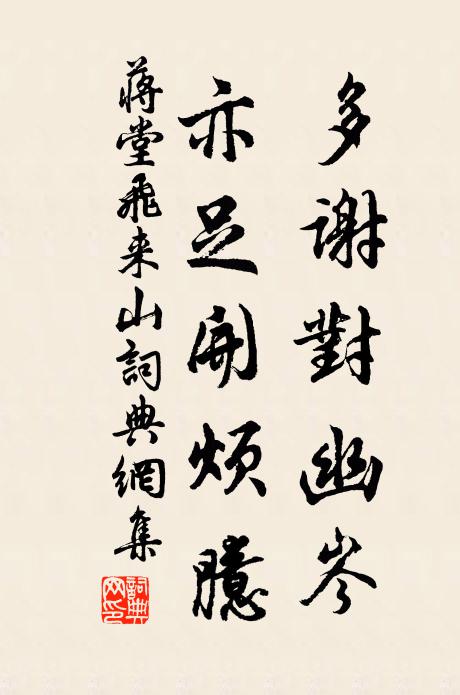 多謝對幽岑
亦足開煩臆
蔣堂飛来山詞典網集
詞典